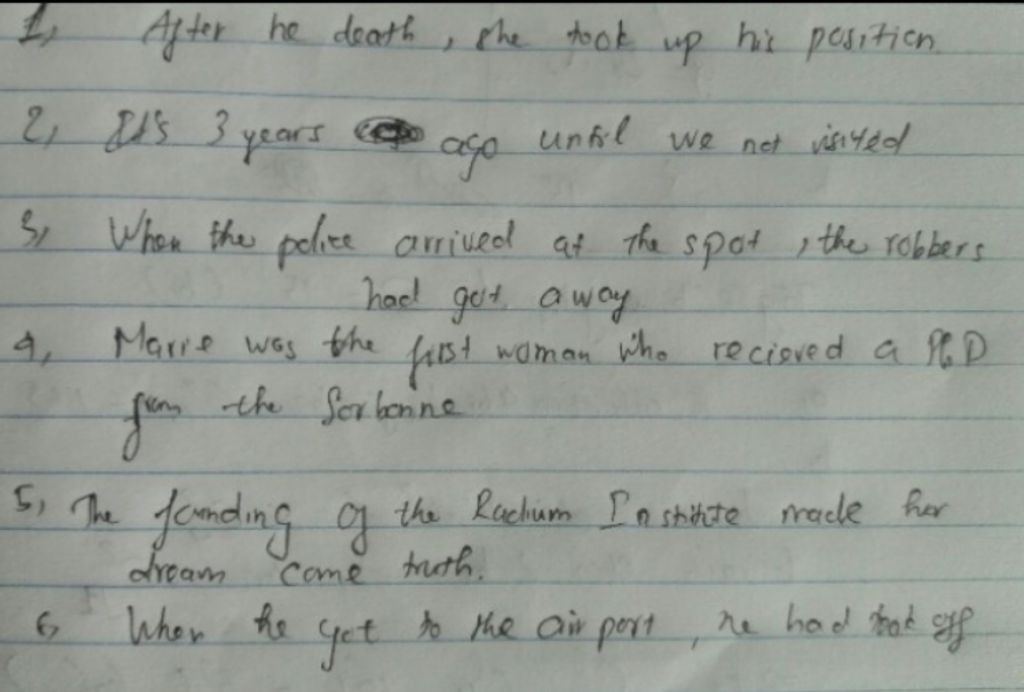 1, After he death, she took up his position
2, It's 3 years ago until we not visited
3, When the police arrived at the spot, the robbers
had got away
4, Marie was the first woman who recieved a PhD
from the Sorbonne
5, The founding of the Radium Institute made her
dream come truth.
6, When he got to the airport, he had took off